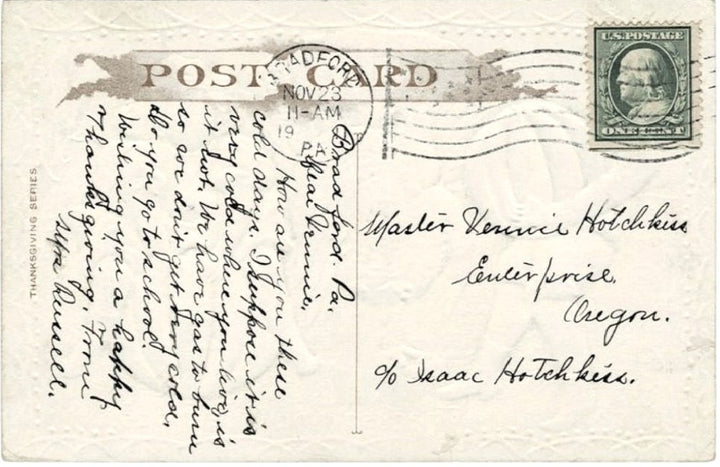 POST CARD
BRADFORD
NOV 23
11-AM
19
PA.
U.S. POSTAGE
ONE CENT
THANKSGIVING SERIES
Bradford. Pa.
Dear Vennie.
How are you these
cold days. I suppose it is
very cold where you live, is
it not. We have gas to burn
so we don't get very cold.
Do you go to school.
Wishing you a happy
Thanksgiving. From
Mrs Russell.
Master Vennie Hotchkiss
Enterprise.
Oregon.
c/o Isaac Hotchkiss.